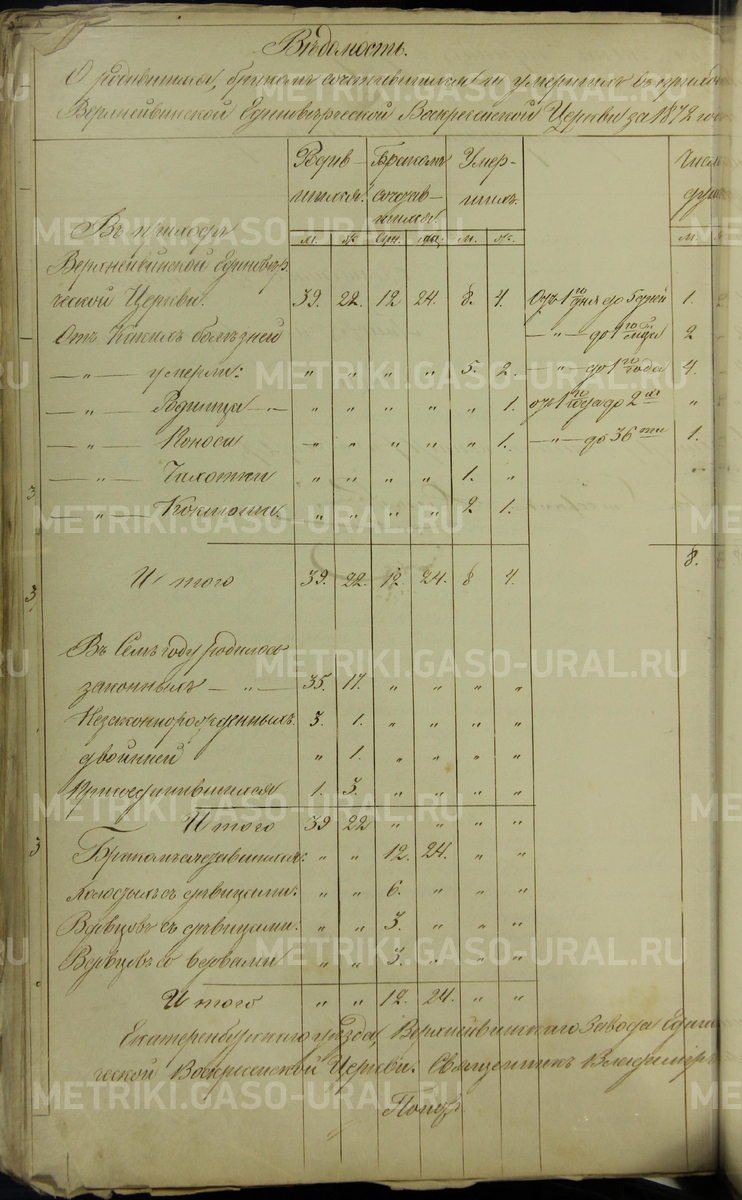 Вѣдомость.
О родившихся, бракомъ сочетавшихся и умершихъ въ приходѣ
Верхнейвинской Единовѣрческой Воскресенской Церкви за 1872 годъ
Родив- Бракомъ Умер- Число
шихся. сочетав- шихъ. душъ
шихся.
Въ приходѣ м. ж. м. ж. м.
Верхнейвинской Единовѣр-
ческой Церкви. 39. 22. 12 24. 8. 4. Отъ 1го дня до 5 дней 1.
Отъ какихъ болѣзней — „ — до 1го мѣсца 2
— „ — умерли: „ „ „ „ 5. 2. — „ — до 1го года 4.
— „ — Родимца — „ — „ „ „ „ „ 1. отъ 1го года до 2хъ „
— „ — Поноса „ „ „ „ „ 1. — „ — до 36ти 1.
— „ — Чахотки „ „ „ „ 1. „
— „ „ „ „ „ 2 1.
8.
Итого 39. 22. 12. 24. 8 4.
Въ семъ году родилось
законныхъ — „ — 35. 17. „ „ „ „
Незаконнорожденныхъ. 3. 1. „ „ „ „
двойней „ 1. „ „ „ „
Присоединившихся 1. 3. „ „ „ „
Итого 39 22 „ „ „ „
„ „ 12. 24. „ „
холостыхъ съ дѣвицами. „ „ 6. „ „ „
Вдовцовъ съ дѣвицами. „ „ 3. „ „ „
Вдовцовъ со вдовами „ „ 3. „ „ „
Итого „ „ 12. 24. „ „
Екатеренбургскаго уѣзда, Верхнейвинскаго Завода Едино
ческой Воскресенской Церкви. Священникъ Владиміръ
Поповъ
METRIKI.GASO-URAL.RU